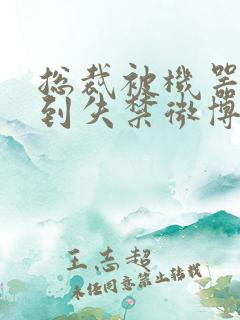 总裁被机器
到失禁微博
王志超
未经同意禁止转载